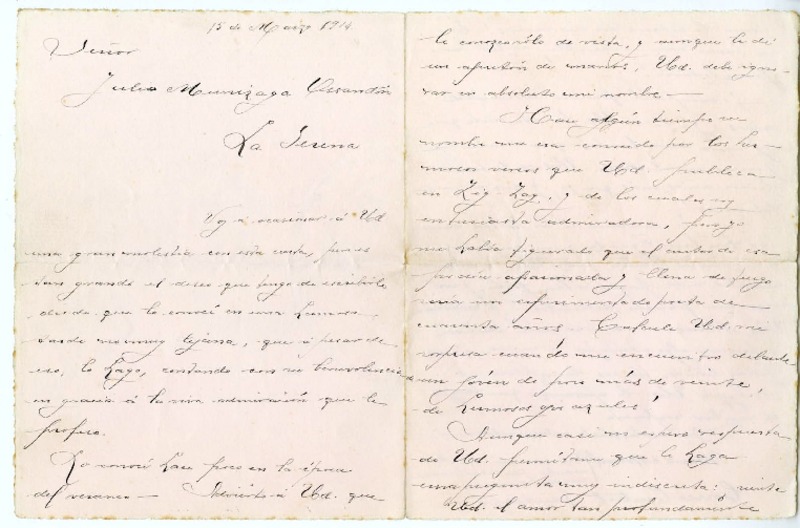 15 de Marzo 1914
Señor
Julio Munizaga Ossandón
La Serena
Voy a ocasionar á Ud
una gran molestia con esta carta, pues es
tan grande el deseo que tengo de escribirle
desde que le conocí en una hermosa
tarde no muy lejana, que á pesar de
eso, lo hago, contando con su benevolencia
en gracia á la viva admiración que le
profeso.
Lo conocí hace poco en la época
del verano — Advierto á Ud. que
le conozco sólo de vista, y aunque le dí
un apretón de manos, Ud. debe igno-
rar en absoluto mi nombre —
Hace algún tiempo su
nombre me era conocido por los her-
mosos versos que Ud. publica
en Zig-Zag, y de los cuales soy
entusiasta admiradora, pero yo
me había figurado que el autor de esa
poesía apasionada y llena de fuego
sería un experimentado poeta de
cuarenta años. Calcule Ud. mi
sorpresa cuando me encuentro delante
un jóven de poco más de veinte,
de hermosos ojos azules!
Aunque casi no espero respuesta
de Ud. permítame que le haga
una pregunta muy indiscreta: siente
Ud. el amor tan profundamente